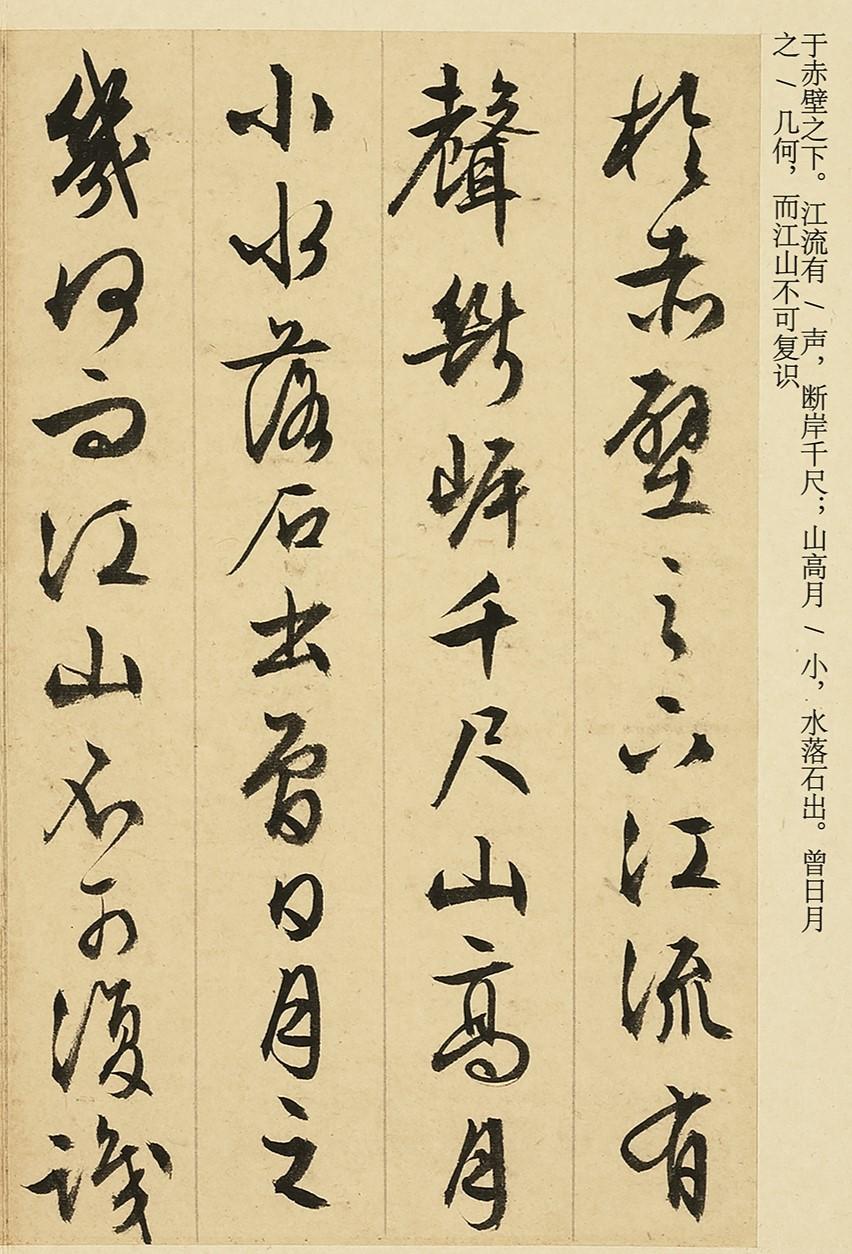 于赤壁之下。江流有/声，断岸千尺；山高月/小，水落石出。曾日月
之/几何，而江山不可复识
於赤壁之下江流有
聲斷岸千尺山高月
小水落石出曾日月之
幾何而江山不可復識